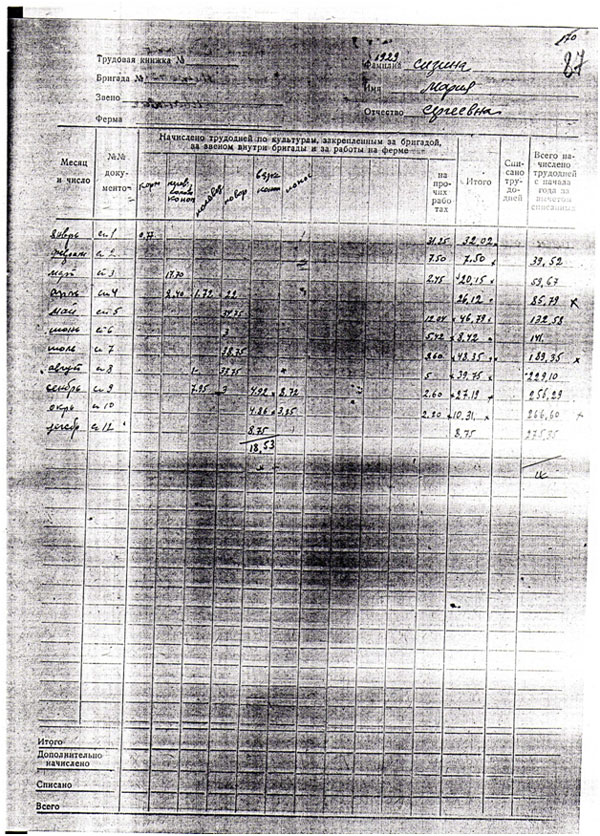 170
87
1929
Трудовая книжка № Фамилия Сизина
Бригада № Имя Мария
Звено Отчество Сергеевна
Ферма
Начислено трудодней по культурам, закрепленным за бригадой,
за звеном внутри бригады и за работы на ферме
Месяц и число
№№ документов
на прочих работах
Итого
Списано трудодней
Всего начислено трудодней с начала года за вычетом списанных
январь сч 1 0,77 31,25 32,02
февраль сч 2 7.50 7.50 39,52
март сч 3 17.70 2.45 20,15 59,67
апрель сч 4 8,40 1,72 26,12 85,79 х
май сч 5 34.75 12.04 46,79 132,58
июнь сч 6 3 5,42 8,42 141.
июль сч 7 38,75 8.60 48.35 189,35 х
август сч 8 1- 33,75 5 39,75 229,10
сентбрь сч 9 7.95 3 4.92 8.72 2.60 27,19 256,29
октрь сч 10 4.86 3,25 2.20 10,31 266,60
декабр сч 12 8.75 8.75 275,35
18,53
Итого
Дополнительно
начислено
Списано
Всего